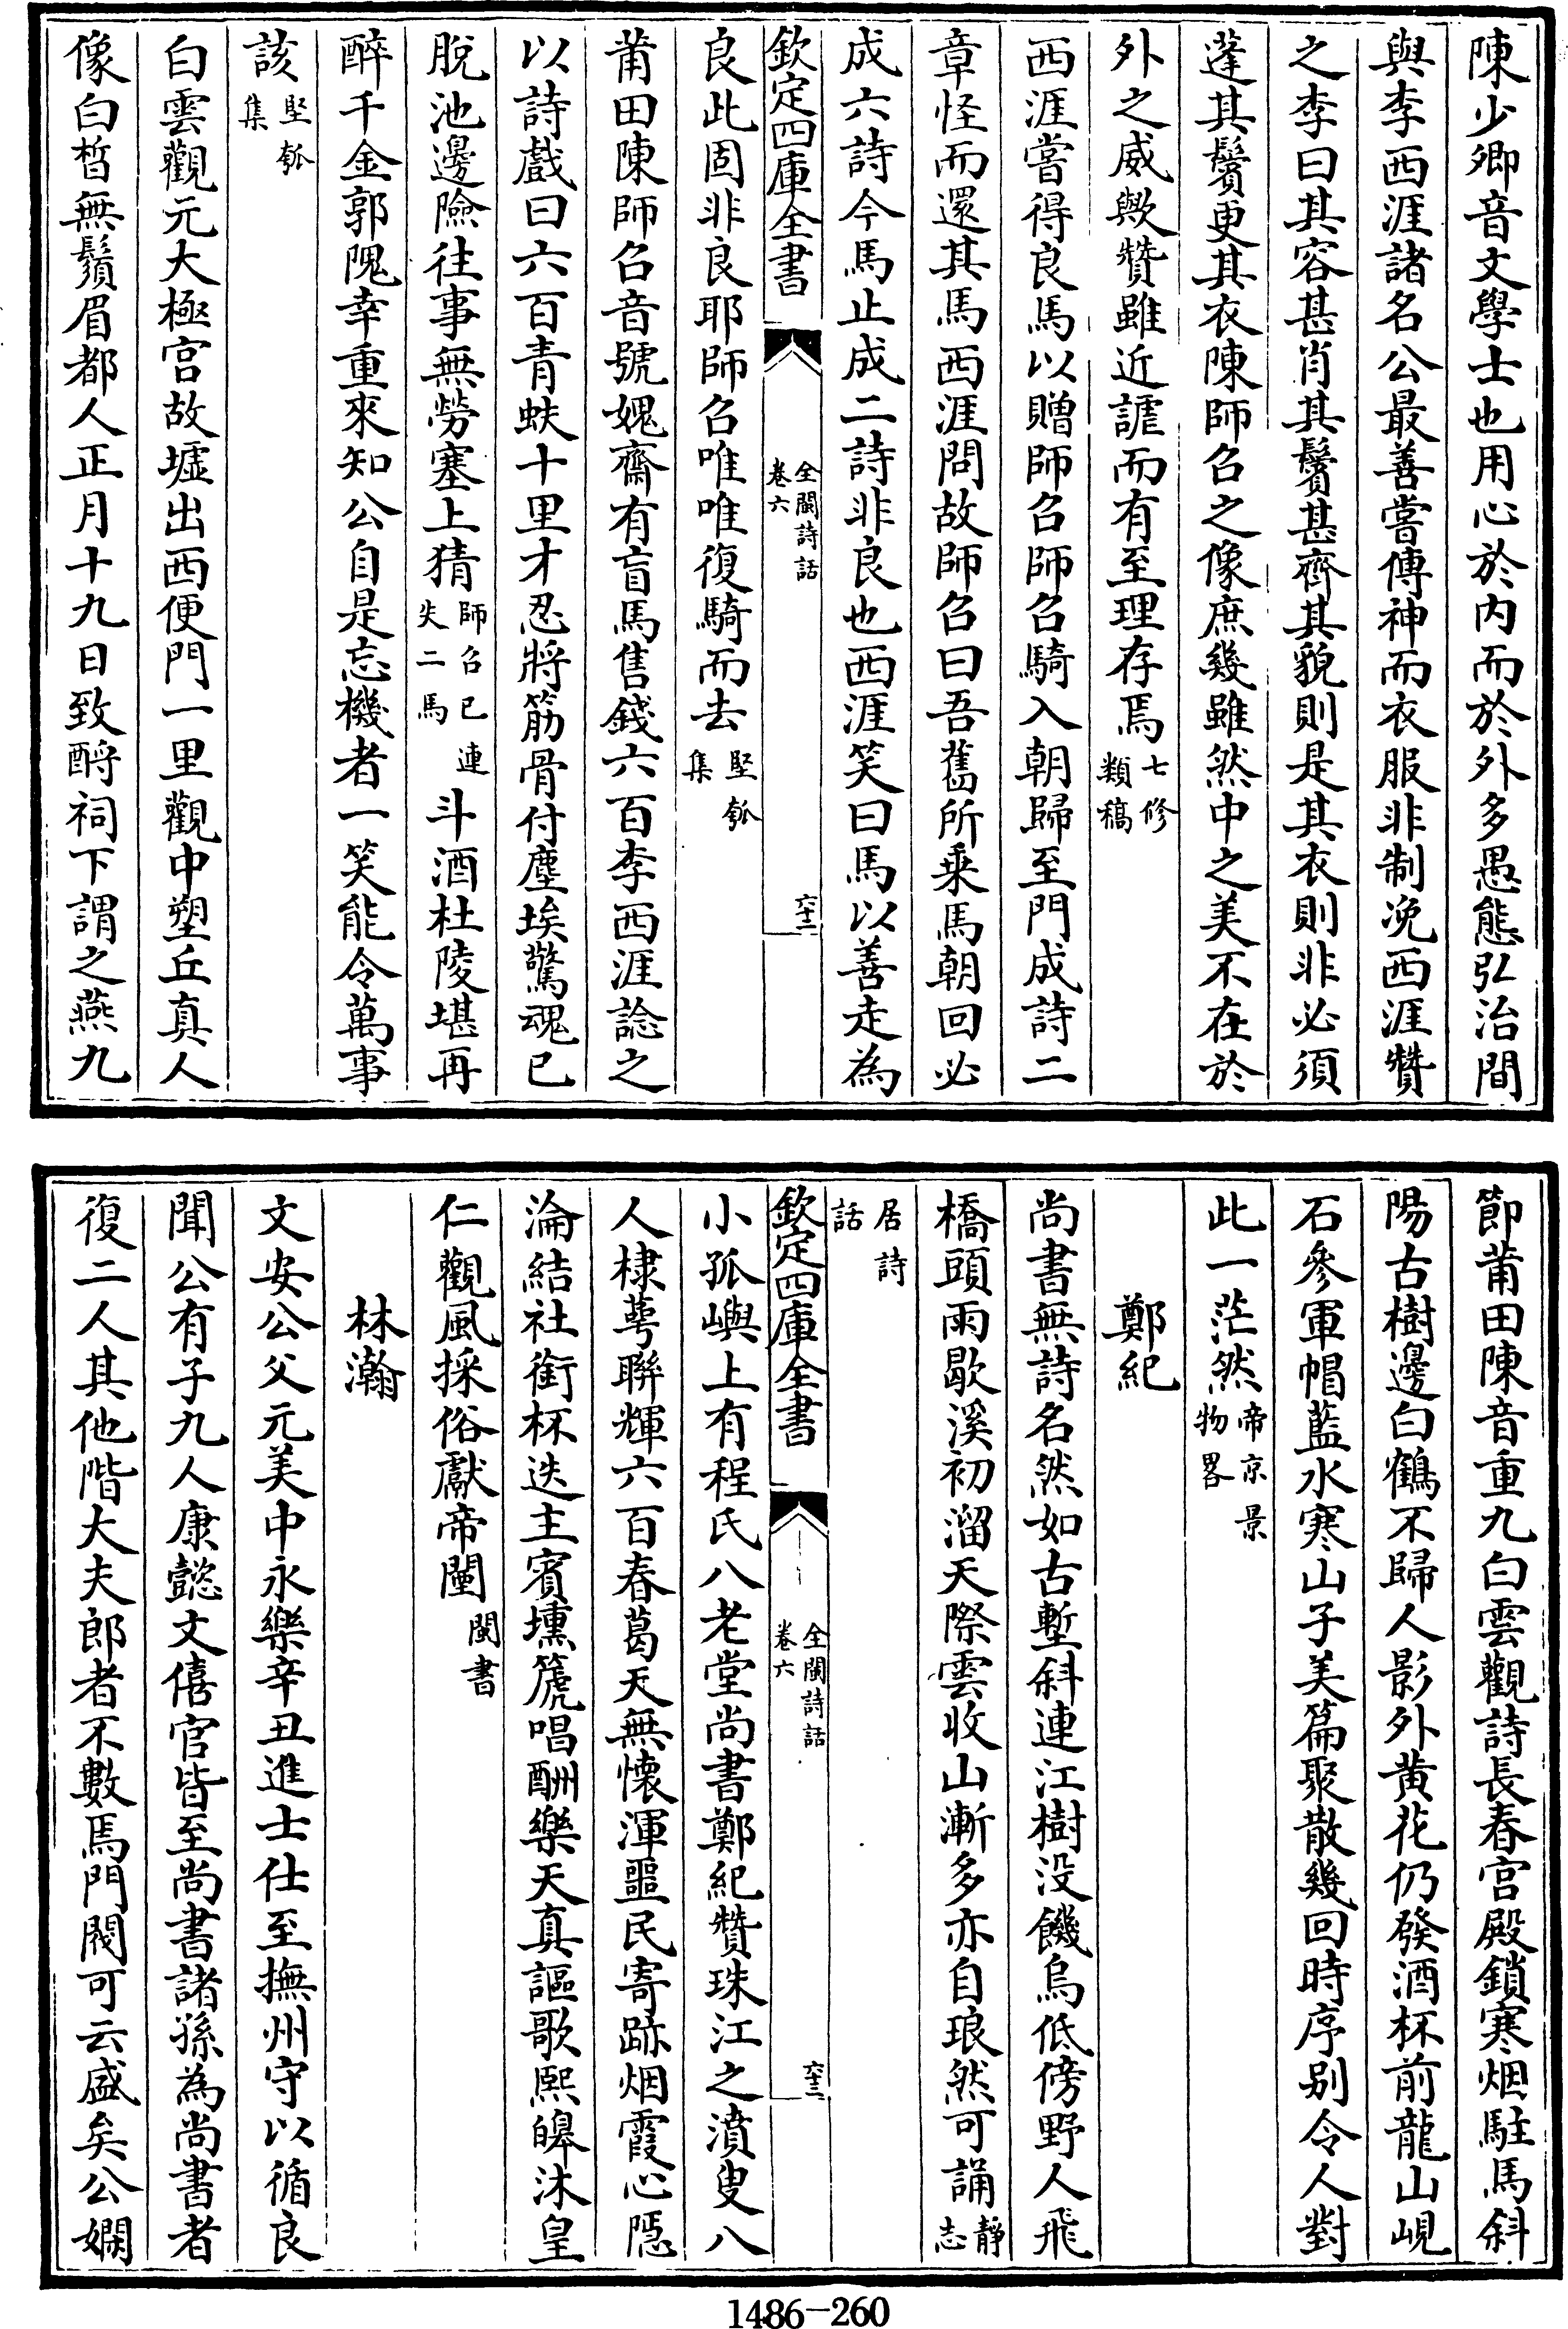 陳少卿音文學士也用心於内而於外多愚態弘治間
與李西涯諸名公最善嘗傳神而衣服非制浼西涯贊
之李曰其容甚肖其鬢甚齊其貌則是其衣則非必須
蓬其鬢更其衣陳師召之像庶幾雖然中之美不在於
外之威歟贊雖近謔而有至理存焉七修類稿
西涯嘗得良馬以贈師召師召騎入朝歸至門成詩二
章怪而還其馬西涯問故師召曰吾舊所乗馬朝回必
成六詩今馬止成二詩非良也西涯笑曰馬以善走為
欽定四庫全書 全閩詩話卷六 六十二
良此固非良耶師召唯唯復騎而去堅瓠集
莆田陳師召音號媿齋有盲馬售錢六百李西涯諗之
以詩戲曰六百青蚨十里才忍將筋骨付塵埃驚魂已
脫池邊險往事無勞塞上猜師召已連失二馬斗酒杜陵堪再
醉千金郭隗幸重來知公自是忘機者一笑能令萬事
該堅瓠集
白雲觀元大極宫故墟出西便門一里觀中塑丘真人
像白晳無鬚眉都人正月十九日致酹祠下謂之燕九
節莆田陳音重九白雲觀詩長春宫殿鎖寒烟駐馬斜
陽古樹邊白鶴不歸人影外黄花仍發酒杯前龍山峴
石參軍帽藍水寒山子美篇聚散幾回時序别令人對
此一茫然帝京景物畧
鄭紀
尚書無詩名然如古塹斜連江樹没饑烏低傍野人飛
橋頭雨歇溪初溜天際雲收山漸多亦自琅然可誦静志
居詩話
欽定四庫全書 全閩詩話卷六 六十三
小孤嶼上有程氏八老堂尚書鄭紀贊珠江之濆叟八
人棣萼聯輝六百春葛天無懷渾噩民寄跡烟霞心隱
淪結社銜杯迭主賓壎篪唱酬樂天真謳歌熙皞沐皇
仁觀風採俗獻帝閽閩書
林瀚
文安公父元美中永樂辛丑進士仕至撫州守以循良
聞公有子九人康懿文僖官皆至尚書諸孫為尚書者
復二人其他階大夫郎者不數焉門閥可云盛矣公嫻
1486-260